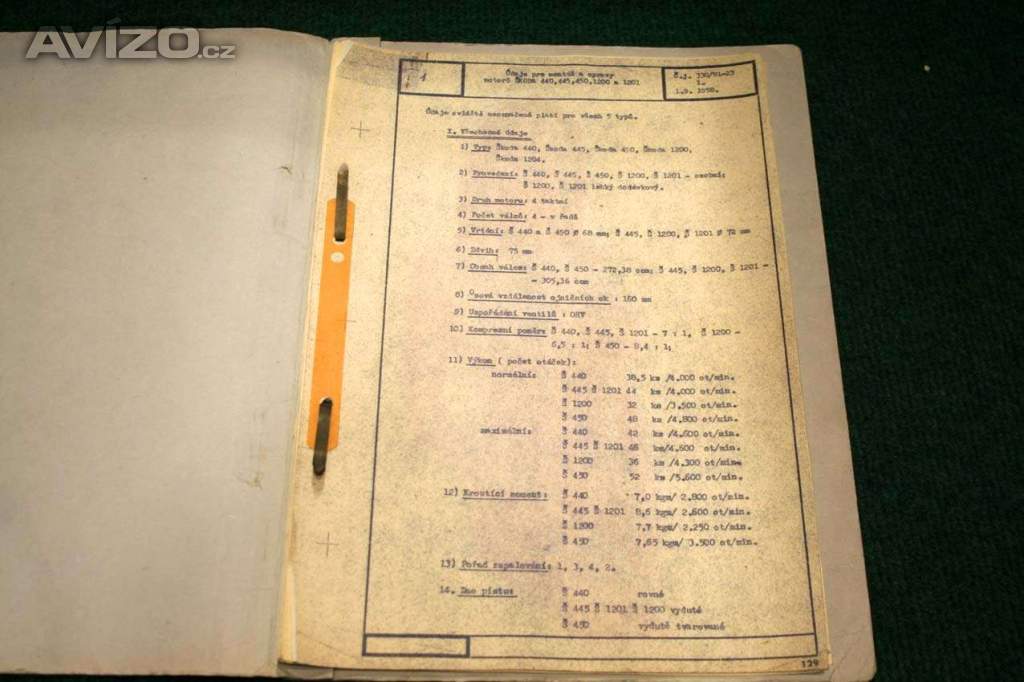 AVÍZO.cz
1
Údaje pro montáž a opravy
motorů ŠKODA 440,445,450,1200 a 1201
Č.j. 330/81-23
1.
1.9. 1958.
Údaje zvlášti neoznačené platí pro všech 5 typů.
I. Všeobecné údaje
1) Typ: Škoda 440, Škoda 445, Škoda 450, Škoda 1200,
Škoda 1201.
2) Provedení: Š 440, Š 445, Š 450, Š 1200, Š 1201 - osobní;
Š 1200, Š 1201 lehký dodávkový.
3) Druh motoru: 4 taktní
4) Počet válců: 4 - v řadě
5) Vrtání: Š 440 a Š 450 ø 68 mm; Š 445, Š 1200, Š 1201 ø 72 mm
6) Zdvih: 75 mm
7) Obsah válce: Š 440, Š 450 - 272,38 ccm; Š 445, Š 1200, Š 1201 -
- 305,36 ccm
8) Osová vzdálenost ojničních ok : 160 mm
9) Uspořádání ventilů : OHV
10) Kompresní poměr: Š 440, Š 445, Š 1201 - 7 : 1, Š 1200 -
6,5 : 1; Š 450 - 8,4 : 1;
11) Výkon ( počet otáček):
normální: Š 440 38,5 ks /4.000 ot/min.
Š 445 Š 1201 44 ks /4.000 ot/min.
Š 1200 32 ks /3.500 ot/min.
Š 450 48 ks /4.800 ot/min.
maximální: Š 440 42 ks /4.600 ot/min.
Š 445 Š 1201 48 ks/4.600 ot/min.
Š 1200 36 ks /4.300 ot/min.
Š 450 52 ks /5.600 ot/min.
12) Kroutící moment: Š 440 7,0 kgm/ 2.800 ot/min.
Š 445 Š 1201 8,6 kgm/ 2.600 ot/min.
Š 1200 7,7 kgm/ 2.250 ot/min.
Š 450 7,65 kgm/ 3.500 ot/min.
13) Pořad zapalování: 1, 3, 4, 2.
14. Dno pístu: Š 440 rovné
Š 445 Š 1201 Š 1200 vyduté
Š 450 vydutě tvarované
129